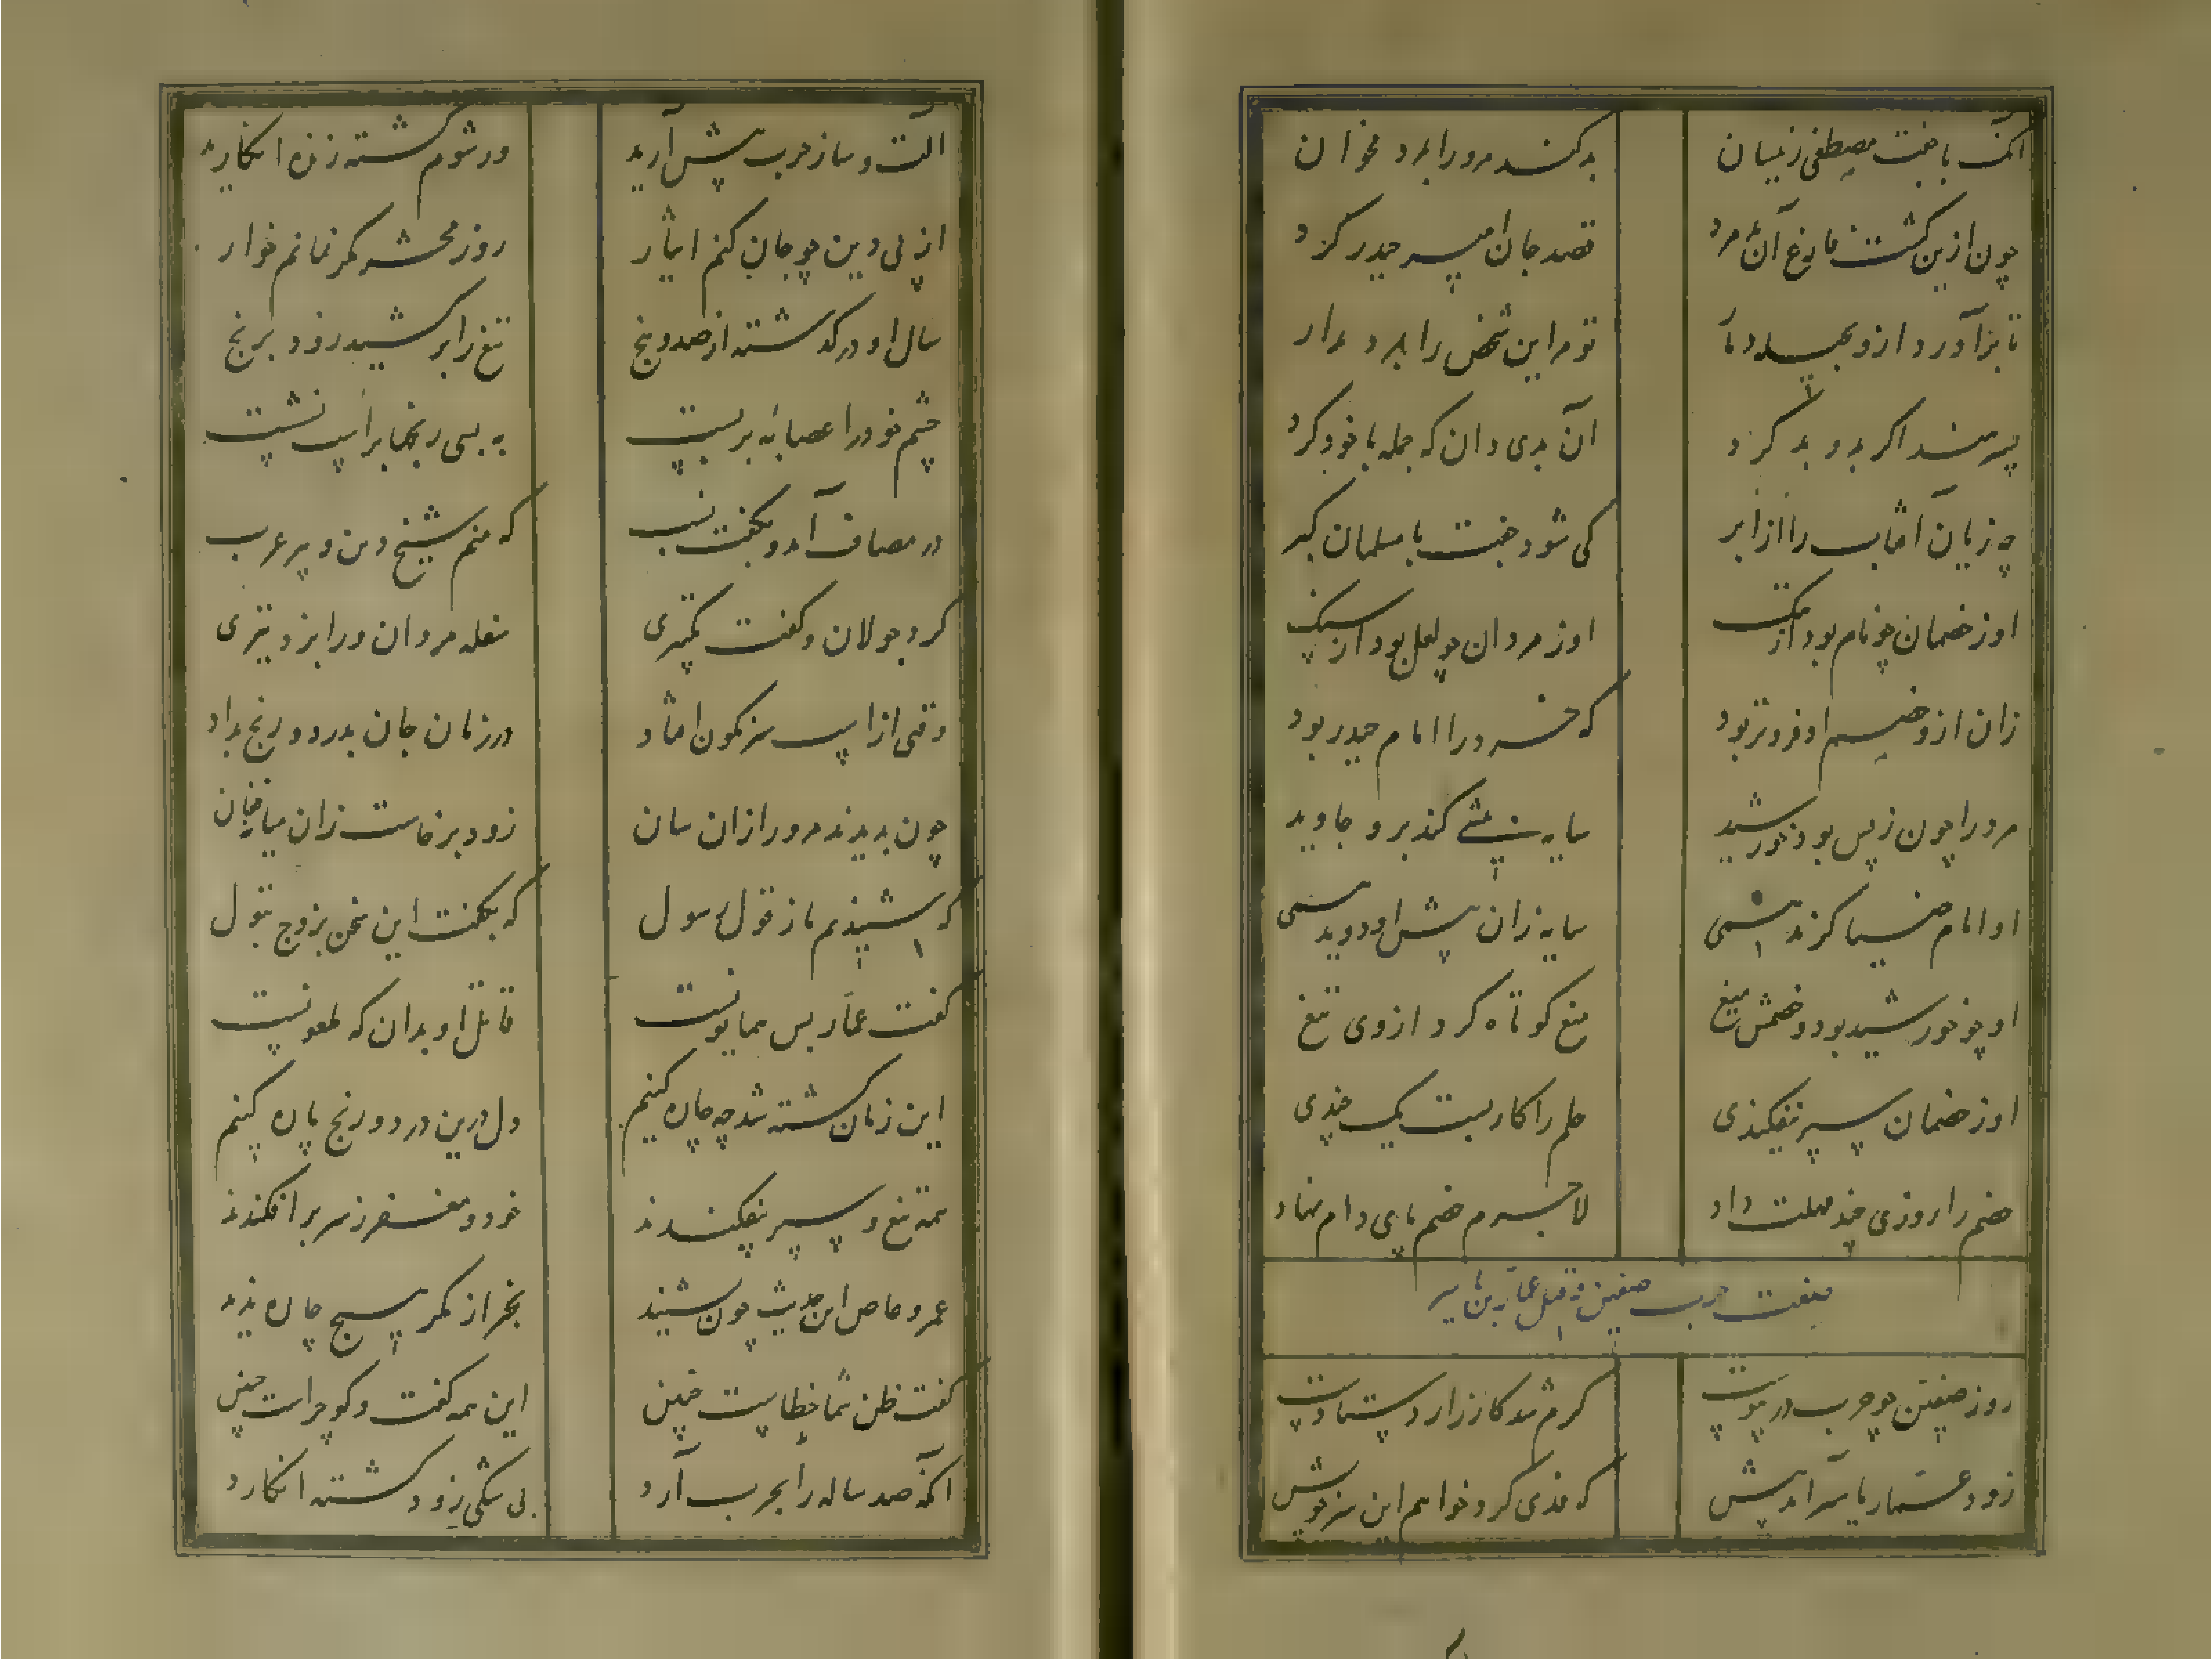 آنک با جفت مصطفی زنیسان بد کند مرورا بمرد مخوان
چون ازین گشت فارغ آن مرد قصد جان امیر حیدر کرد
تا برآورد ازو بحیله دمار تو مر این شخص را بمرد مدار
پسر هند اگر بدو بد کرد آن بدی دان که جمله با خود کرد
چه زیان آفتاب را از ابر کی شود جفت با مسلمان گبر
او ز خصمان چو نام بود از ننگ او ز مردان چو لعل بود از سنگ
زان ازو خصم او فروتر بود که خرد را امام حیدر بود
مرورا چون ز پس بود خورشید سایه پیشی کند برو جاوید
او امام ضیا گزند همی سایه زان پیش او دوید همی
او چو خورشید بود و خصمش میغ میغ کوتاه کرد ازوی تیغ
او ز خصمان سپر نیفکندی حلم را کار بست یک چندی
خصم را روزی چند مهلت داد لاجرم خصم پای دام نهاد
صفت حرب صفین و قتل عمار بن یاسر
روز صفین چو حرب در پیوست گرم شد کارزار دستادست
زود عمار یاسر آمد پیش که فدی کرد خواهم این سر خویش
آلت و ساز حرب پیش آرید ور شوم کشته زنده انگارید
از پی دین چو جان کنم ایثار روز محشر مگر نمانم خوار
سال او درگذشته از صد و پنج تیغ را برکشید زود برنج
چشم خود را عصابه بر بست به بسی رنجها بر اسپ نشست
در مصاف آمد و بگفت نسب که منم شیخ دین و پیر عرب
کرد جولان و گفت تکبیری سفله مردان ورا بزد تیری
وقتی از اسپ سرنگون افتاد در زمان جان بدرد و رنج بداد
چون بدیدند مرورا زان سان زود برخاست زان میانه فغان
که شنیدیم ما ز قول رسول که بگفت این سخن بزوج بتول
گفت عمار بس همایونست قاتل او بدان که ملعونست
این زمان کشته شد چه چاره کنیم دل درین درد و رنج پاره کنیم
همه تیغ و سپر بیفکندند خود و مغفر ز سر برافکندند
عمرو عاص این حدیث چون شنید بجز از مکر هیچ چاره ندید
گفت ظن شما خطاست چنین این همه گفت و گو چراست چنین
آنکه صد ساله را بحرب آرد بی شکی زود کشته انگارد